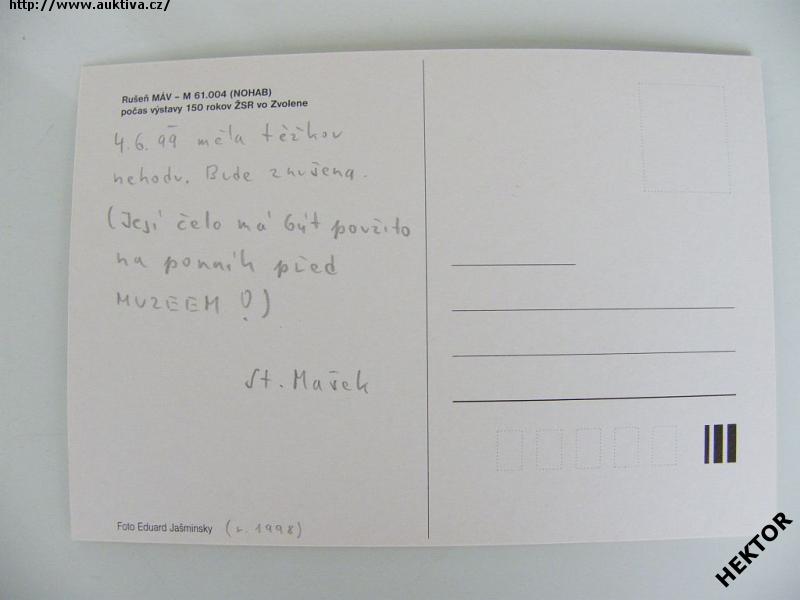 http://www.auktiva.cz/
Rušeň MÁV – M 61.004 (NOHAB)
počas výstavy 150 rokov ŽSR vo Zvolene
4.6.99 měla těžkou
nehodu. Bude zrušena.
(Její čelo má být použito
na pomník před
MUZEEM!)
St. Mašek
Foto Eduard Jašminsky (r. 1998)
HEKTOR